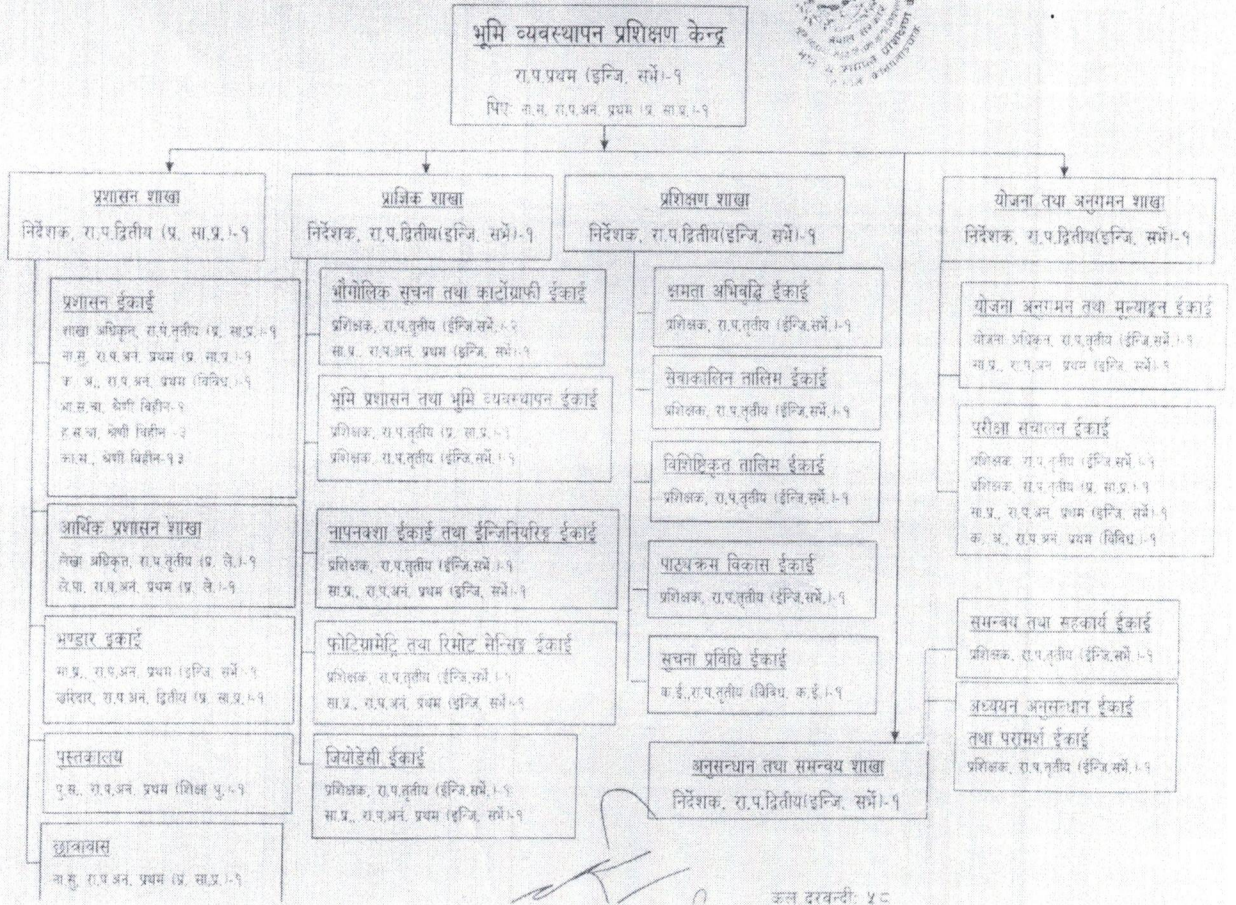 भूमि व्यवस्थापन प्रशिक्षण केन्द्र
रा.प.प्रथम (इन्जि. सर्भे)-१
पिए: ना.सु. रा.प.अनं. प्रथम (प्र. सा.प्र.)-१
प्रशासन शाखा
निर्देशक, रा.प.द्वितीय (प्र. सा.प्र.)-१
प्रशासन ईकाई
शाखा अधिकृत, रा.प.तृतीय (प्र. सा.प्र.)-१
ना.सु. रा.प.अनं. प्रथम (प्र. सा.प्र.)-१
क. अ., रा.प.अनं. प्रथम (विविध)-१
श्रेणी विहीन-१
ह.स.चा. श्रेणी विहीन -३
का.स., श्रेणी विहीन-१३
आर्थिक प्रशासन शाखा
लेखा अधिकृत, रा.प.तृतीय (प्र. ले.)-१
ले.पा. रा.प.अनं. प्रथम (प्र. ले.)-१
भण्डार इकाई
सा.प्र., रा.प.अनं. प्रथम (इन्जि. सर्भे)-१
खरिदार, रा.प.अनं. द्वितीय (प्र. सा.प्र.)-१
पुस्तकालय
पु.स., रा.प.अनं. प्रथम (शिक्षा पु.)-१
छात्रावास
ना.सु. रा.प.अनं. प्रथम (प्र. सा.प्र.)-१
प्राज्ञिक शाखा
निर्देशक, रा.प.द्वितीय(इन्जि. सर्भे)-१
भौगोलिक सूचना तथा कार्टोग्राफी ईकाई
प्रशिक्षक, रा.प.तृतीय (ईन्जि.सर्भे.)-२
सा.प्र., रा.प.अनं. प्रथम (इन्जि. सर्भे)-१
भूमि प्रशासन तथा भुमि व्यवस्थापन ईकाई
प्रशिक्षक, रा.प.तृतीय (प्र. सा.प्र.)-१
प्रशिक्षक, रा.प.तृतीय (ईन्जि.सर्भे.)-१
नापनक्शा ईकाई तथा ईन्जिनियरिङ्ग ईकाई
प्रशिक्षक, रा.प.तृतीय (ईन्जि.सर्भे.)-१
सा.प्र., रा.प.अनं. प्रथम (इन्जि. सर्भे)-१
फोटिग्रामेट्रि तथा रिमोट सेन्सिङ्ग ईकाई
प्रशिक्षक, रा.प.तृतीय (ईन्जि.सर्भे.)-१
सा.प्र., रा.प.अनं. प्रथम (इन्जि. सर्भे)-१
जियोडेसी ईकाई
प्रशिक्षक, रा.प.तृतीय (ईन्जि.सर्भे.)-१
सा.प्र., रा.प.अनं. प्रथम (इन्जि. सर्भे)-१
प्रशिक्षण शाखा
निर्देशक, रा.प.द्वितीय(इन्जि. सर्भे)-१
क्षमता अभिवृद्धि ईकाई
प्रशिक्षक, रा.प.तृतीय (ईन्जि.सर्भे.)-१
सेवाकालिन तालिम ईकाई
प्रशिक्षक, रा.प.तृतीय (ईन्जि.सर्भे.)-१
विशिष्टिकृत तालिम ईकाई
प्रशिक्षक, रा.प.तृतीय (ईन्जि.सर्भे.)-१
पाठ्यक्रम विकास ईकाई
प्रशिक्षक, रा.प.तृतीय (ईन्जि.सर्भे.)-१
सुचना प्रविधि ईकाई
क.ई.,रा.प.तृतीय (विविध, क.ई.)-१
अनुसन्धान तथा समन्वय शाखा
निर्देशक, रा.प.द्वितीय(इन्जि. सर्भे)-१
योजना तथा अनुगमन शाखा
निर्देशक, रा.प.द्वितीय(इन्जि. सर्भे)-१
योजना अनुगमन तथा मुल्याङ्कन ईकाई
योजना अधिकृत, रा.प.तृतीय (ईन्जि.सर्भे.)-१
ना.प्र., रा.प.अनं. प्रथम (इन्जि. सर्भे)-१
परीक्षा संचालन ईकाई
प्रशिक्षक, रा.प.तृतीय (ईन्जि.सर्भे.)-१
प्रशिक्षक, रा.प.तृतीय (प्र. सा.प्र.)-१
सा.प्र., रा.प.अनं. प्रथम (इन्जि. सर्भे)-१
क. अ., रा.प.अनं. प्रथम (विविध)-१
समन्वय तथा सहकार्य ईकाई
प्रशिक्षक, रा.प.तृतीय (ईन्जि.सर्भे.)-१
अध्ययन अनुसन्धान ईकाई
तथा परामर्श ईकाई
प्रशिक्षक, रा.प.तृतीय (ईन्जि.सर्भे.)-१
कुल दरवन्दी: ५८